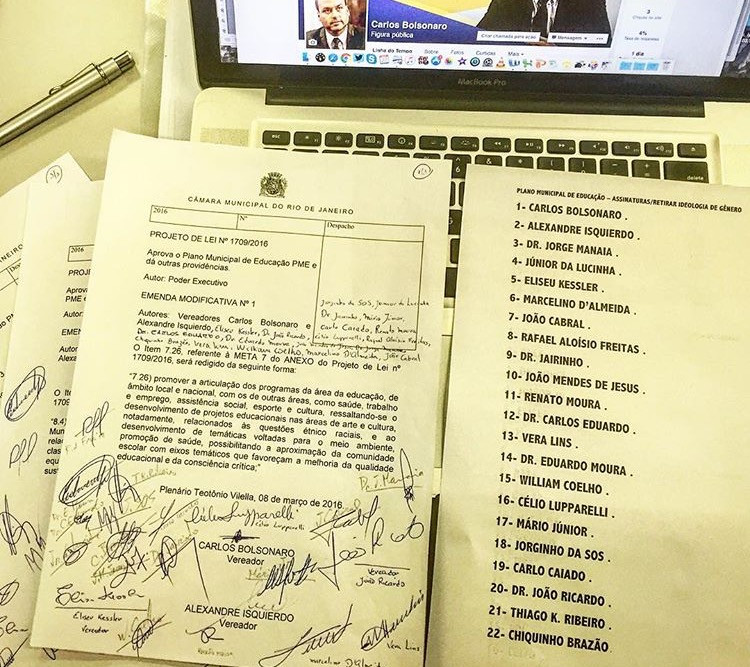 Carlos Bolsonaro
Figura pública
Linha do Tempo Sobre Fotos Curtidas Mais
MacBook Pro
esc
delete
CÂMARA MUNICIPAL DO RIO DE JANEIRO
2016 Nº Despacho
PROJETO DE LEI Nº 1709/2016
Aprova o Plano Municipal de Educação PME e
dá outras providências.
Autor: Poder Executivo
EMENDA MODIFICATIVA Nº 1
Jorginho da SOS, Junior da Lucinha
Dr. Jairinho, Mário Júnior,
Autores: Vereadores Carlos Bolsonaro e Carlo Caiado, Renato Moura
Alexandre Isquierdo, Eliseu Kessler, Dr João Ricardo, Célio Lupparelli, Rafael Aloisio Freitas,
Dr. Carlos Eduardo, Dr Eduardo Moura
Chiquinho Brazão, Vera Lins, William Coelho, Marcelino D'Almeida, João Cabral
O Item 7.26, referente à META 7 do ANEXO do Projeto de Lei nº
1709/2016, será redigido da seguinte forma:
"7.26) promover a articulação dos programas da área da educação, de
âmbito local e nacional, com os de outras áreas, como saúde, trabalho
e emprego, assistência social, esporte e cultura, ressaltando-se o
desenvolvimento de projetos educacionais nas áreas de arte e cultura,
notadamente, relacionados às questões étnico raciais, e ao
desenvolvimento de temáticas voltadas para o meio ambiente,
promoção de saúde, possibilitando a aproximação da comunidade
escolar com eixos temáticos que favoreçam a melhoria da qualidade
educacional e da consciência crítica;"
Plenário Teotônio Vilella, 08 de março de 2016
Célio Lupparelli
CARLOS BOLSONARO
Vereador
Vereador
João Ricardo
Eliseu Kessler
Vereador
ALEXANDRE ISQUIERDO
Vereador
Vera Lins
Marcelino D'Almeida
PLANO MUNICIPAL DE EDUCAÇÃO – ASSINATURAS/RETIRAR IDEOLOGIA DE GÊNERO
1- CARLOS BOLSONARO .
2- ALEXANDRE ISQUIERDO .
3- DR. JORGE MANAIA .
4- JÚNIOR DA LUCINHA .
5- ELISEU KESSLER .
6- MARCELINO D'ALMEIDA .
7- JOÃO CABRAL .
8- RAFAEL ALOÍSIO FREITAS .
9- DR. JAIRINHO .
10- JOÃO MENDES DE JESUS .
11- RENATO MOURA .
12- DR. CARLOS EDUARDO .
13- VERA LINS .
14- DR. EDUARDO MOURA .
15- WILLIAM COELHO .
16- CÉLIO LUPPARELLI .
17- MÁRIO JÚNIOR .
18- JORGINHO DA SOS .
19- CARLO CAIADO .
20- DR. JOÃO RICARDO .
21- THIAGO K. RIBEIRO .
22- CHIQUINHO BRAZÃO .